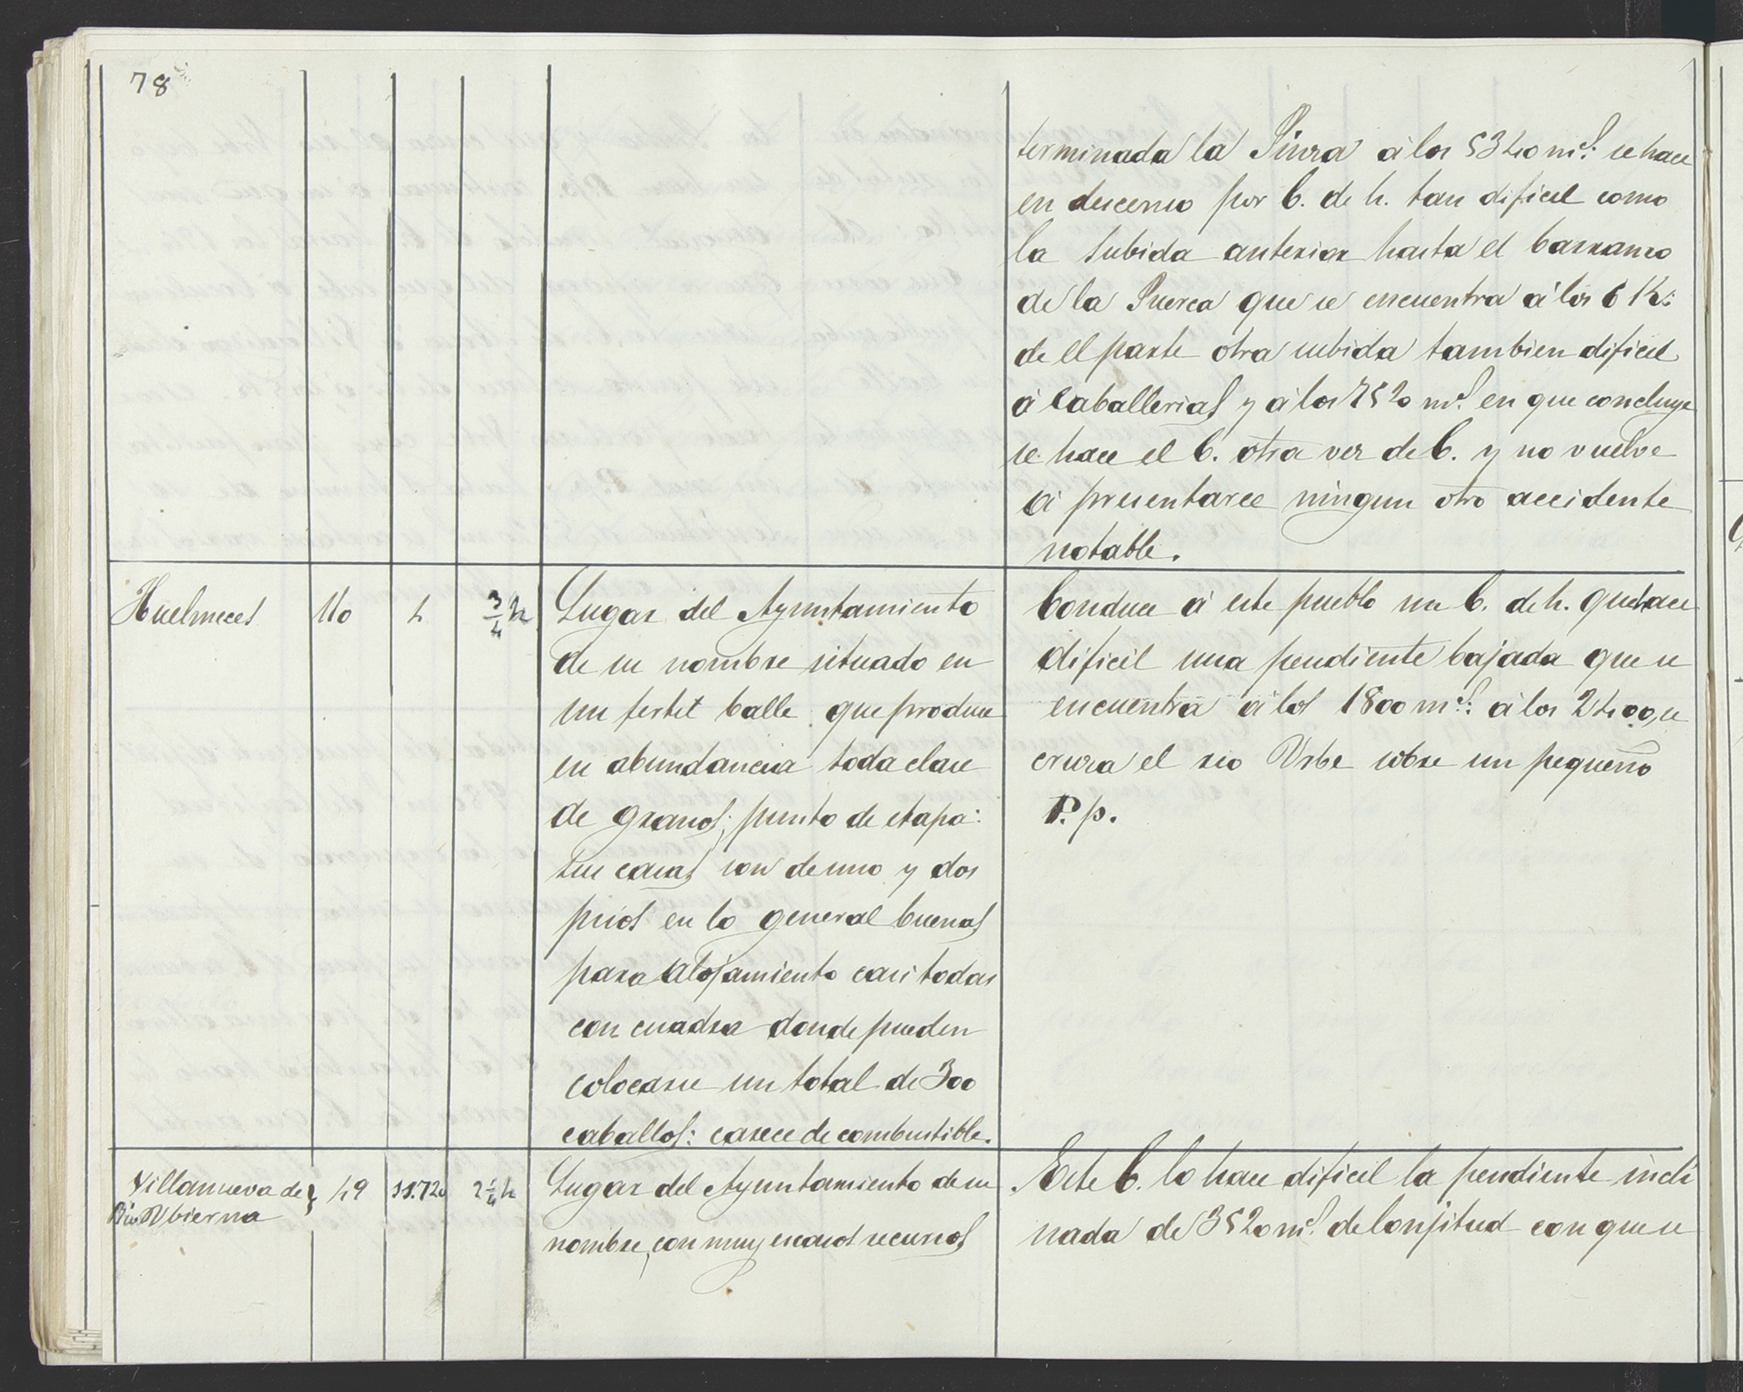 78
terminada la Piura á los 5340 ms. se hace
en descenso por C. de h. tan dificil como
la subida anterior hasta el barranco
de la Puerca que se encuentra á los 6 K:
de el parte otra subida tambien dificil
á Caballerias y á los 7520 ms. en que concluye
se hace el C. otra vez de C. y no vuelve
á presentarse ningun otro accidente
notable.
Huelmeces
110
4
3/4 h
Lugar del Ayuntamiento
de su nombre situado en
un fertil balle que produce
en abundancia toda clase
de granos; punto de etapa:
sus casas son de uno y dos
pisos en lo general buenas
para alojamiento casi todas
con cuadra donde pueden
colocarse un total de 300
caballos: carece de combustible.
Conduce á este pueblo un C. de h. que hace
dificil una pendiente bajada que se
encuentra á los 1800 ms: á los 2400 se
cruza el rio Urbe sobre un pequeño
P. p.
Villanueva de
Rio Ubierna
49
11.720
2 1/4 h
Lugar del Ayuntamiento de su
nombre, con muy escasos recursos
Este C. lo hace dificil la pendiente incli
nada de 3520 ms. de lonjitud con que se